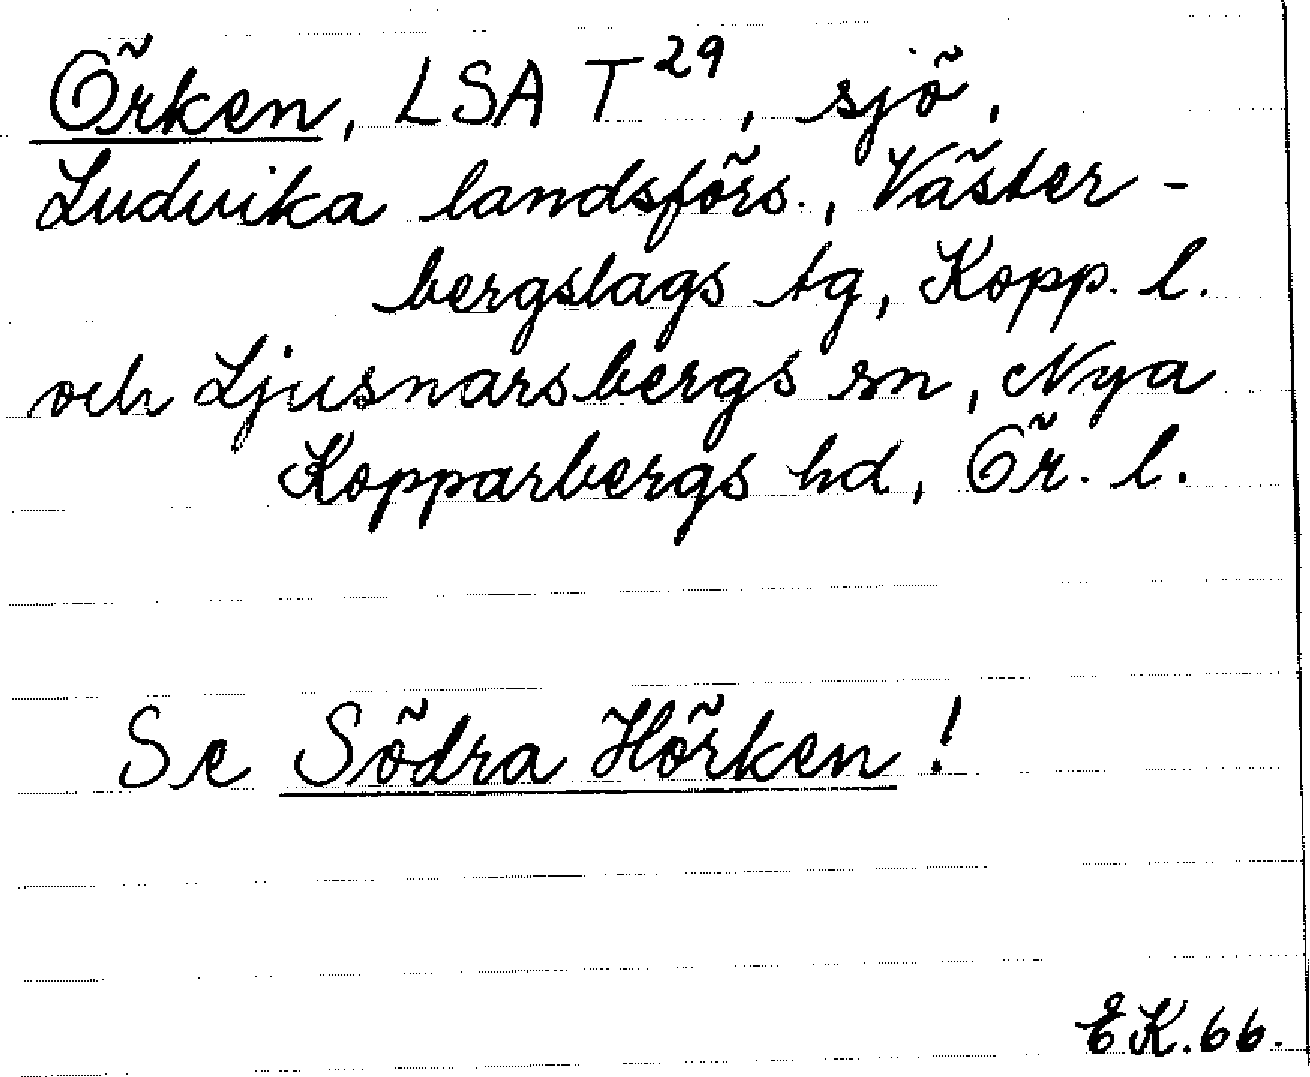 Örken, LSA T²⁹, sjö,
Ludvika landsförs., Väster-
bergslags tg, Kopp. l.
och Ljusnarsbergs sn, Nya
Kopparbergs hd, Ör. l.
Se Södra Hörken!
EK.66.